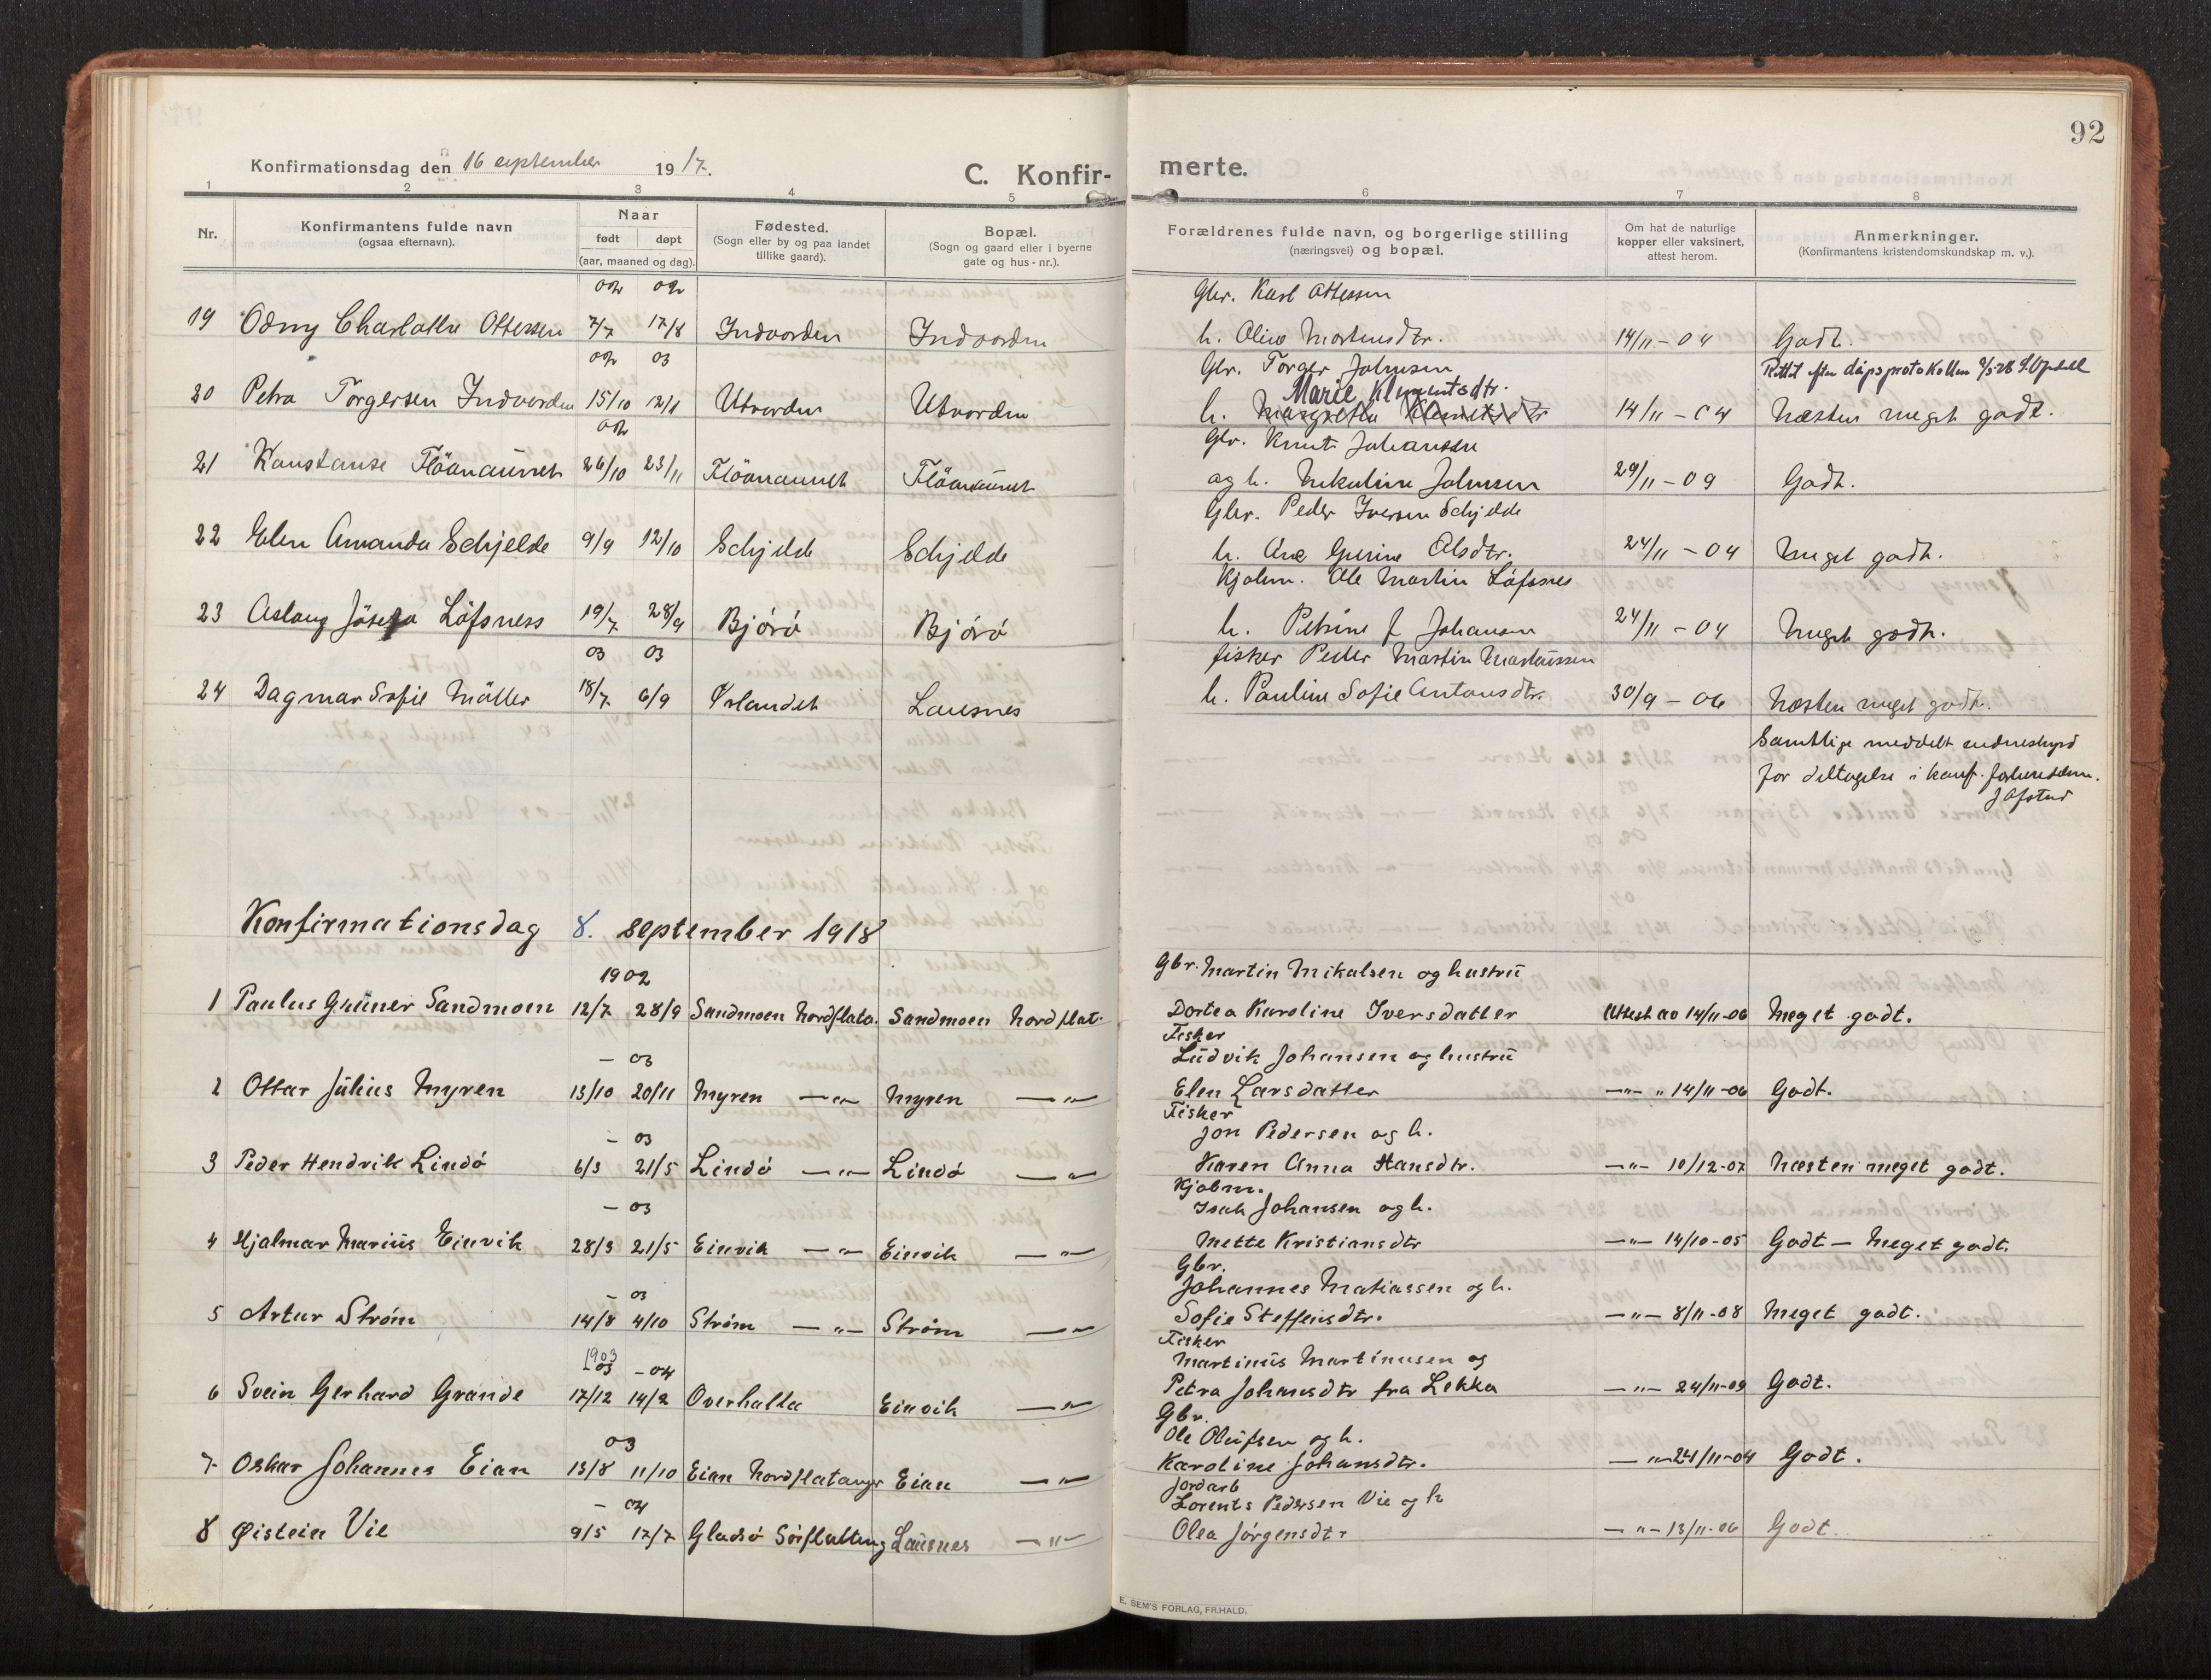 92
Konfirmationsdag den 16 september 1917.
C. Konfirmerte.
1 2 3 4 5 6 7 8
Nr.
Konfirmantens fulde navn
(ogsaa efternavn).
Naar
født døpt
(aar, maaned og dag).
Fødested.
(Sogn eller by og paa landet
tillike gaard).
Bopæl.
(Sogn og gaard eller i byerne
gate og hus-nr.).
Forældrenes fulde navn, og borgerlige stilling
(næringsvei) og bopæl.
Om hat de naturlige
kopper eller vaksinert,
attest herom.
Anmerkninger.
(Konfirmantens kristendomskundskap m. v.).
02 02 Gbr. Karl Ottessen
19 Odny Charlotte Ottessen 7/7 17/8 Indvorden Indvorden h. Oline Mortensdtr. 14/11-04 Godt.
02 03 Gbr. Torger Johnsen Rettet efter dåpsprotokollen
Marie Klementsdtr.
20 Petra Torgersen Indvorden 15/10 12/1 Utvorden Utvorden h. Margretha Klemetsdtr 14/11-04 Næsten meget godt.
02 Gbr. Knut Johansen
21 Konstanse Flöanaunet 26/10 23/11 Flöanaunet Flöanaunet og h. Nikoline Johnsen 29/11-09 Godt.
Gbr. Peder Iversen Schjelde
22 Elen Amanda Schjelde 9/9 12/10 Schjelde Schjelde h. Ane Gurine Olsdtr. 24/11-04 Meget godt.
Kjøbm. Ole Martin Löfsnes
23 Aslaug Jösefa Löfsness 19/7 28/9 Bjórö Bjórö h. Petrine J Johansen 24/11-04 Meget godt.
03 03 fisker Peder Martin Martinussen
24 Dagmar Sofie Möller 18/7 6/9 Ørlandet Lausnes h. Pauline Sofie Antonsdtr. 30/9-06 Næsten meget godt.
Samtlige meddelt
for deltagelse i konf. forberedelsen.
Konfirmationsdag 8. september 1918
1902 Gbr. Martin Mikalsen og hustru
1 Paulus Grüner Sandmoen 12/7 28/9 Sandmoen Nordflata. Sandmoen Nordflat. Dortea Karoline Iversdatter Attest av 14/11-06 Meget godt.
Fisker
- 03 Ludvik Johansen og hustru
2 Ottar Julius Myren 13/10 20/11 Myren —"— Myren —"— Elen Larsdatter —"— " 14/11-06 Godt.
Fisker
- 03 Jon Pedersen og h.
3 Peder Hendrik Lindö 6/3 21/5 Lindö —"— Lindö —"— Karen Anna Hansdtr. —"— 10/12-07 Næsten meget godt.
Kjøbm.
- 03 Isak Johansen og h.
4 Hjalmar Marius Einvik 28/3 21/5 Einvik —"— Einvik —"— Mette Kristiansdtr —"— 14/10-05 Godt - Meget godt.
Gbr.
- 03 Johannes Matiassen og h.
5 Artur Strøm 14/8 4/10 Strøm —"— Strøm —"— Sofie Steffensdtr. —"— 8/11-08 Meget godt.
Fisker
1903 -03 -04 Martinus Martinusen og
6 Svein Gerhard Grande 17/12 14/2 Overhalla Einvik —"— Petra Johansdtr fra Lekka —"— 24/11-09 Godt.
Gbr.
03 Ole Olufsen og h.
7 Oskar Johannes Eian 13/8 11/10 Eian Nordflatangr Eian —"— Karoline Johansdtr. —"— 24/11-04 Godt.
Jordarb
- 04 Lorents Pedersen Vie og h
8 Øistein Vie 9/5 17/7 Gladsö Sörflatteng Lausnes —"— Olea Jörgensdtr —"— 13/11-06 Godt.
E. SEM'S FORLAG, FR.HALD.